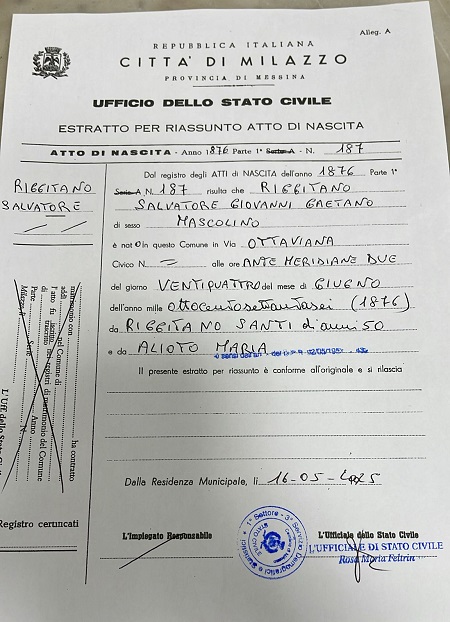 Alleg. A
REPUBBLICA ITALIANA
CITTA' DI MILAZZO
PROVINCIA DI MESSINA
UFFICIO DELLO STATO CIVILE
ESTRATTO PER RIASSUNTO ATTO DI NASCITA
ATTO DI NASCITA - Anno 1876 Parte 1ª Serie A - N. 187
RIGGITANO
SALVATORE
Dal registro degli ATTI DI NASCITA dell'anno 1876 Parte 1ª
Serie A N. 187 risulta che RIGGITANO
SALVATORE GIOVANNI GAETANO
di sesso MASCOLINO
è nato in questo Comune in Via OTTAVIANA
Civico N. = alle ore ANTE MERIDIANE DUE
del giorno VENTIQUATTRO del mese di GIUGNO
dell'anno mille ottocentosettantasei (1876)
da RIGGITANO SANTI d'anni 50
e da ALIOTO MARIA
Il presente estratto per riassunto è conforme all'originale e si rilascia
Dalla Residenza Municipale, li 16-05-2025
matrimonio con ha contratto
addì nel Comune di
Fatto fu iscritto nei registri di matrimonio del Comune
di Anno
Parte Serie N.
Milazzo, lì
L'Uff. dello Stato Civile
Registro ceruncati
L'Impiegato Responsabile
L'Ufficiale dello Stato Civile
1° Settore - 3° Servizio
Demografici e Statistici
STATO CIVILE
L'UFFICIALE DI STATO CIVILE
Rosa Maria Feltrin